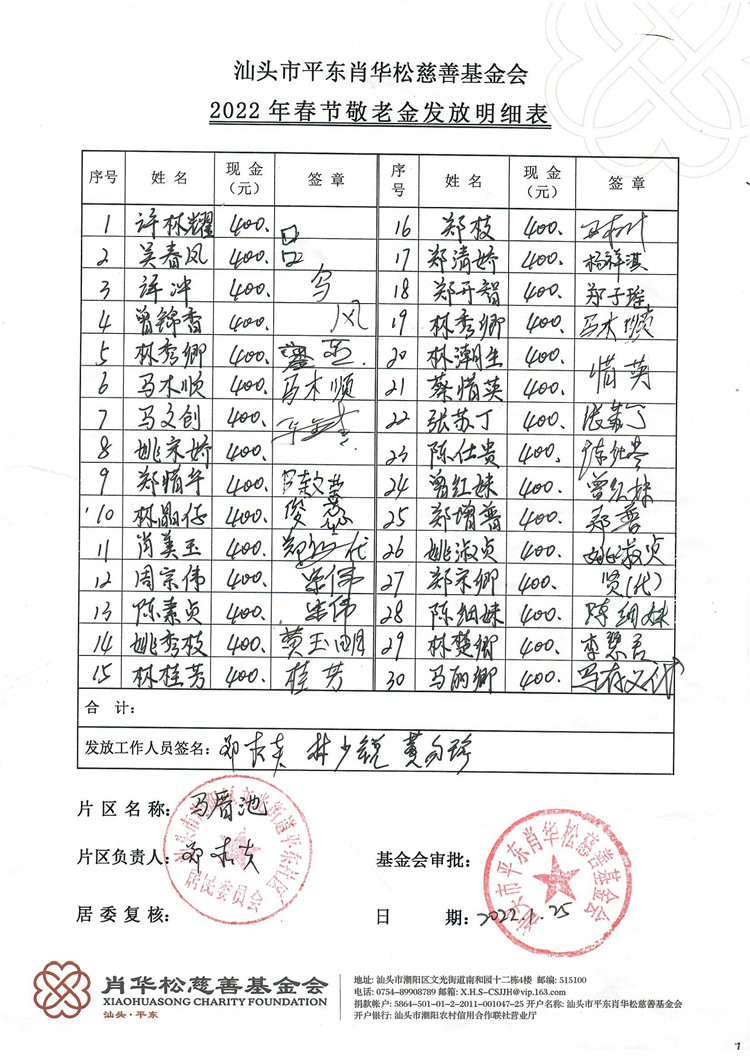 汕头市平东肖华松慈善基金会
2022年春节敬老金发放明细表
序号 姓名 现金（元） 签章 序号 姓名 现金（元） 签章
1 许林耀 400. 16 郑枝 400.
2 吴春凤 400. 17 郑清娇 400. 杨祥淇
3 许冲 400. 18 郑开智 400. 郑子瑶
4 曾锦香 400. 风 19 林秀卿 400. 马木顺
5 林秀卿 400. 20 林潮生 400.
6 马木顺 400. 马木顺 21 蔡惜英 400. 惜英
7 马文创 400. 22 张苏丁 400. 张苏丁
8 姚宋娇 400. 23 陈仕贵 400.
9 郑惜华 400. 24 曾红妹 400. 曾红妹
10 林晶仔 400. 25 郑增普 400. 郑普
11 肖美玉 400. 26 姚淑贞 400. 姚淑贞
12 周宗伟 400. 宗伟 27 郑宋卿 400. 贤(代)
13 陈素贞 400. 宗伟 28 陈细妹 400. 陈细妹
14 姚秀枝 400. 黄玉明 29 林楚卿 400.
15 林桂芳 400. 桂芳 30 马丽卿 400.
合计：
发放工作人员签名： 林少锐
片区名称：马厝池
片区负责人：
基金会审批：
居委复核：
日期：2022.1.25
居民委员会
汕头市平东肖华松慈善基金会
肖华松慈善基金会
XIAOHUASONG CHARITY FOUNDATION
汕头·平东
地址: 汕头市潮阳区文光街道南和园十二栋4楼 邮编: 515100
电话: 0754-89908789 邮箱: X.H.S-CSJJH@vip.163.com
捐款帐户: 5864-501-01-2-2011-001047-25 开户名称: 汕头市平东肖华松慈善基金会
开户银行: 汕头市潮阳农村信用合作联社营业厅